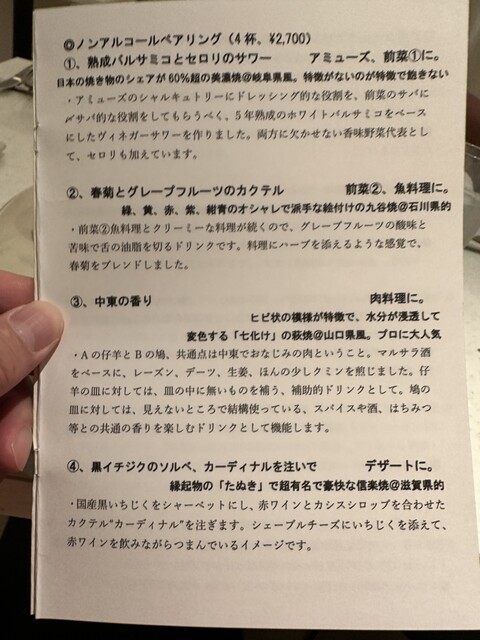 ◎ノンアルコールペアリング（4杯。¥2,700）
①、熟成バルサミコとセロリのサワー　　アミューズ、前菜①に。
日本の焼き物のシェアが60%超の美濃焼@岐阜県風。特徴がないのが特徴で飽きない
・アミューズのシャルキュトリーにドレッシング的な役割を、前菜のサバに
〆サバ的な役割をしてもらうべく、5年熟成のホワイトバルサミコをベース
にしたヴィネガーサワーを作りました。両方に欠かせない香味野菜代表とし
て、セロリも加えています。
②、春菊とグレープフルーツのカクテル　　前菜②、魚料理に。
緑、黄、赤、紫、紺青のオシャレで派手な絵付けの九谷焼@石川県的
・前菜②魚料理とクリーミーな料理が続くので、グレープフルーツの酸味と
苦味で舌の油脂を切るドリンクです。料理にハーブを添えるような感覚で、
春菊をブレンドしました。
③、中東の香り　　肉料理に。
ヒビ状の模様が特徴で、水分が浸透して
変色する「七化け」の萩焼@山口県風。プロに大人気
・Aの仔羊とBの鳩、共通点は中東でおなじみの肉ということ。マルサラ酒
をベースに、レーズン、デーツ、生姜、ほんの少しクミンを煎じました。仔
羊の皿に対しては、皿の中に無いものを補う、補助的ドリンクとして。鳩の
皿に対しては、見えないところで結構使っている、スパイスや酒、はちみつ
等との共通の香りを楽しむドリンクとして機能します。
④、黒イチジクのソルベ、カーディナルを注いで　　デザートに。
縁起物の「たぬき」で超有名で豪快な信楽焼@滋賀県的
・国産黒いちじくをシャーベットにし、赤ワインとカシスシロップを合わせた
カクテル“カーディナル”を注ぎます。シェーブルチーズにいちじくを添えて、
赤ワインを飲みながらつまんでいるイメージです。